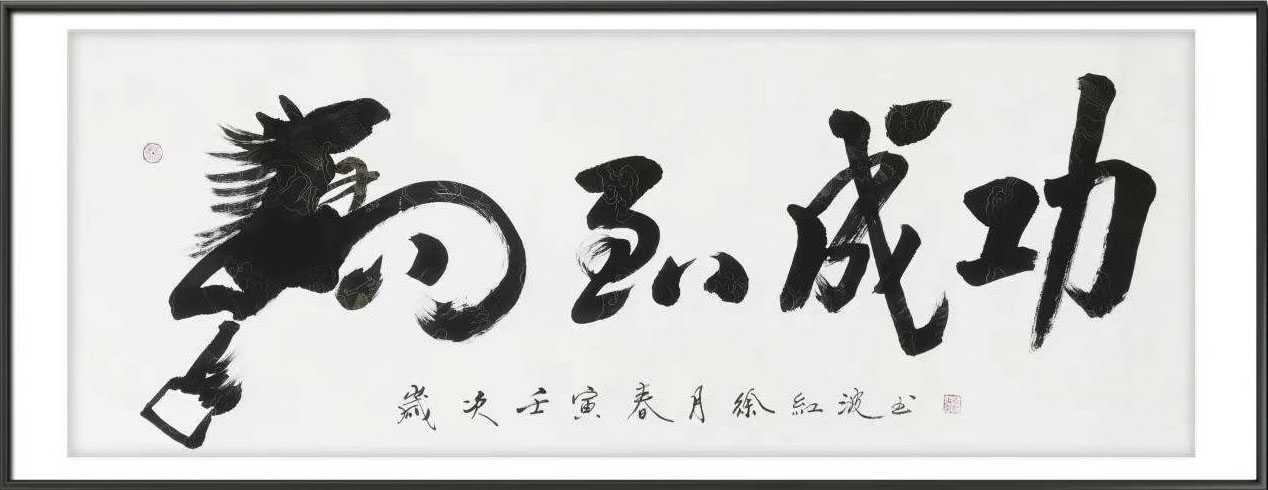 馬到成功
歲次壬寅春月徐紅波书